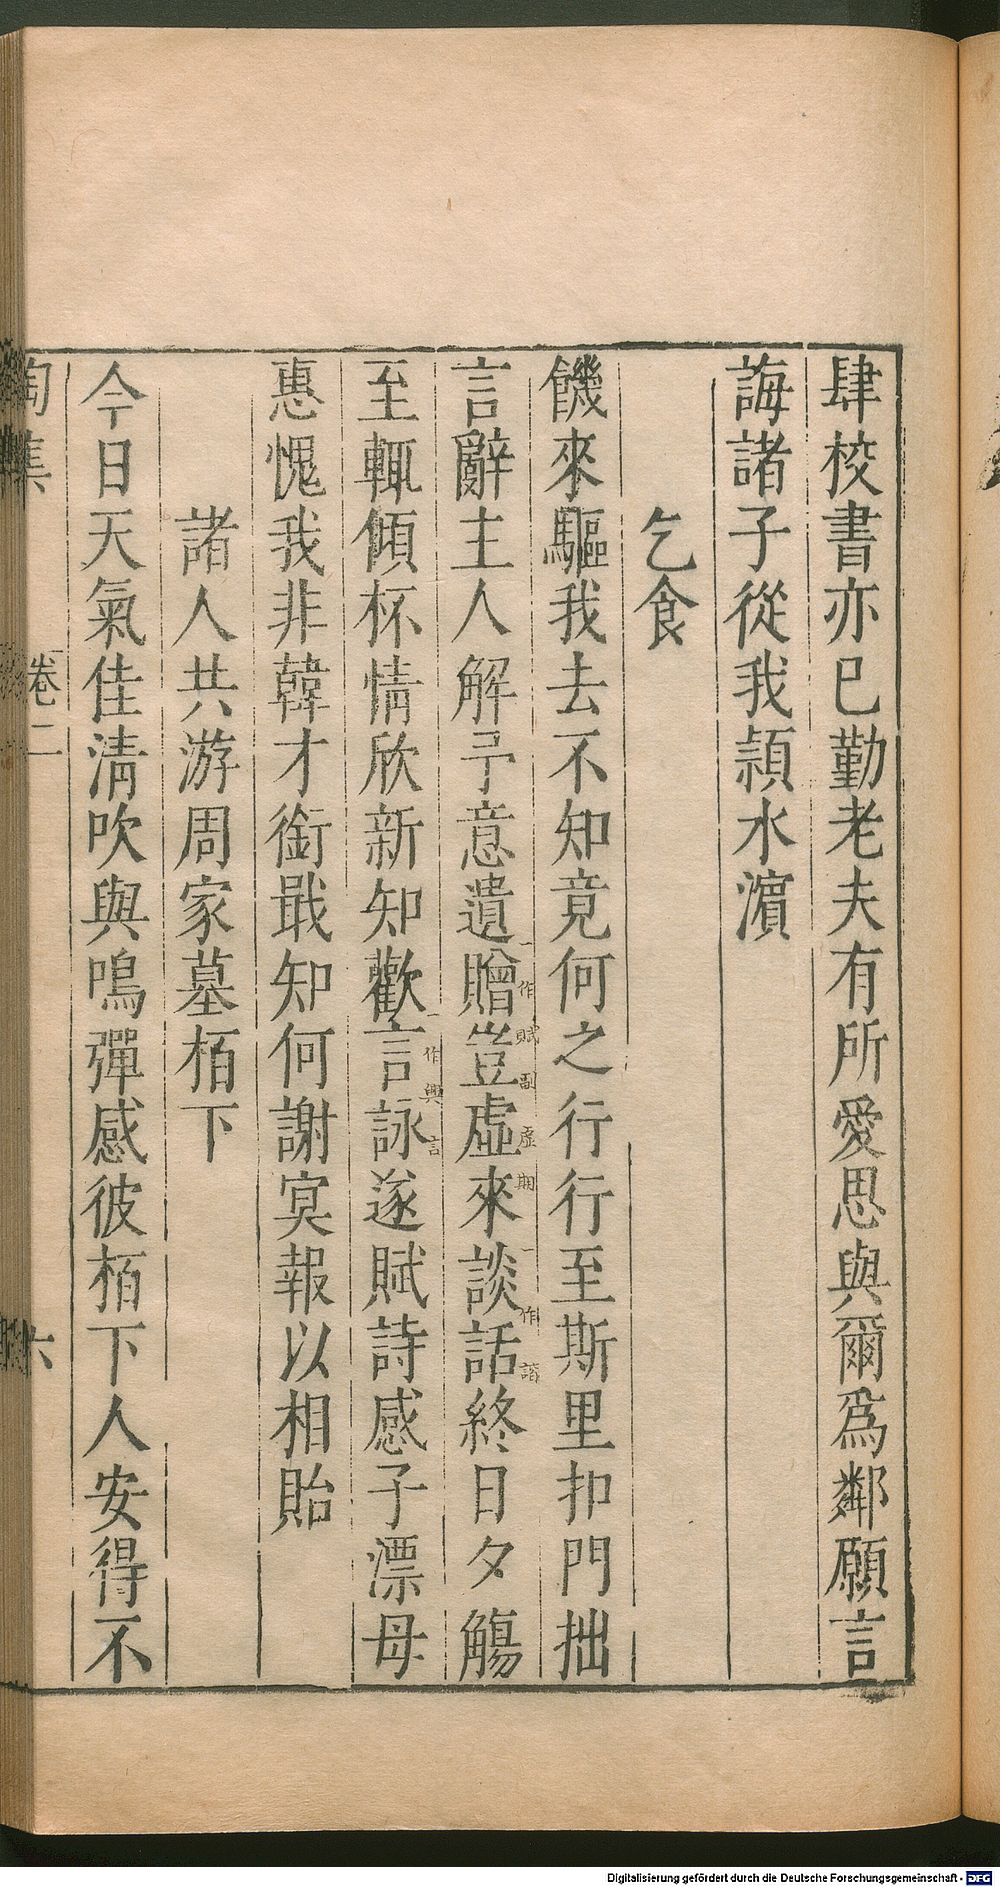 肆校書亦巳勤老夫有所愛思與爾爲鄰願言
誨諸子從我潁水濵
乞食
饑來驅我去不知竟何之行行至斯里扣門拙
言辭主人解予意遺贈豈虛來談話終日夕觴
一作賦副虛期
一作諧
至輒傾杯情欣新知歡言詠遂賦詩感子漂母
一作興言
惠愧我非韓才銜戢知何謝㝠報以相貽
諸人共游周家墓栢下
今日天氣佳清吹與鳴彈感彼栢下人安得不
陶集
卷二
六
Digitalisierung gefördert durch die Deutsche Forschungsgemeinschaft - DFG